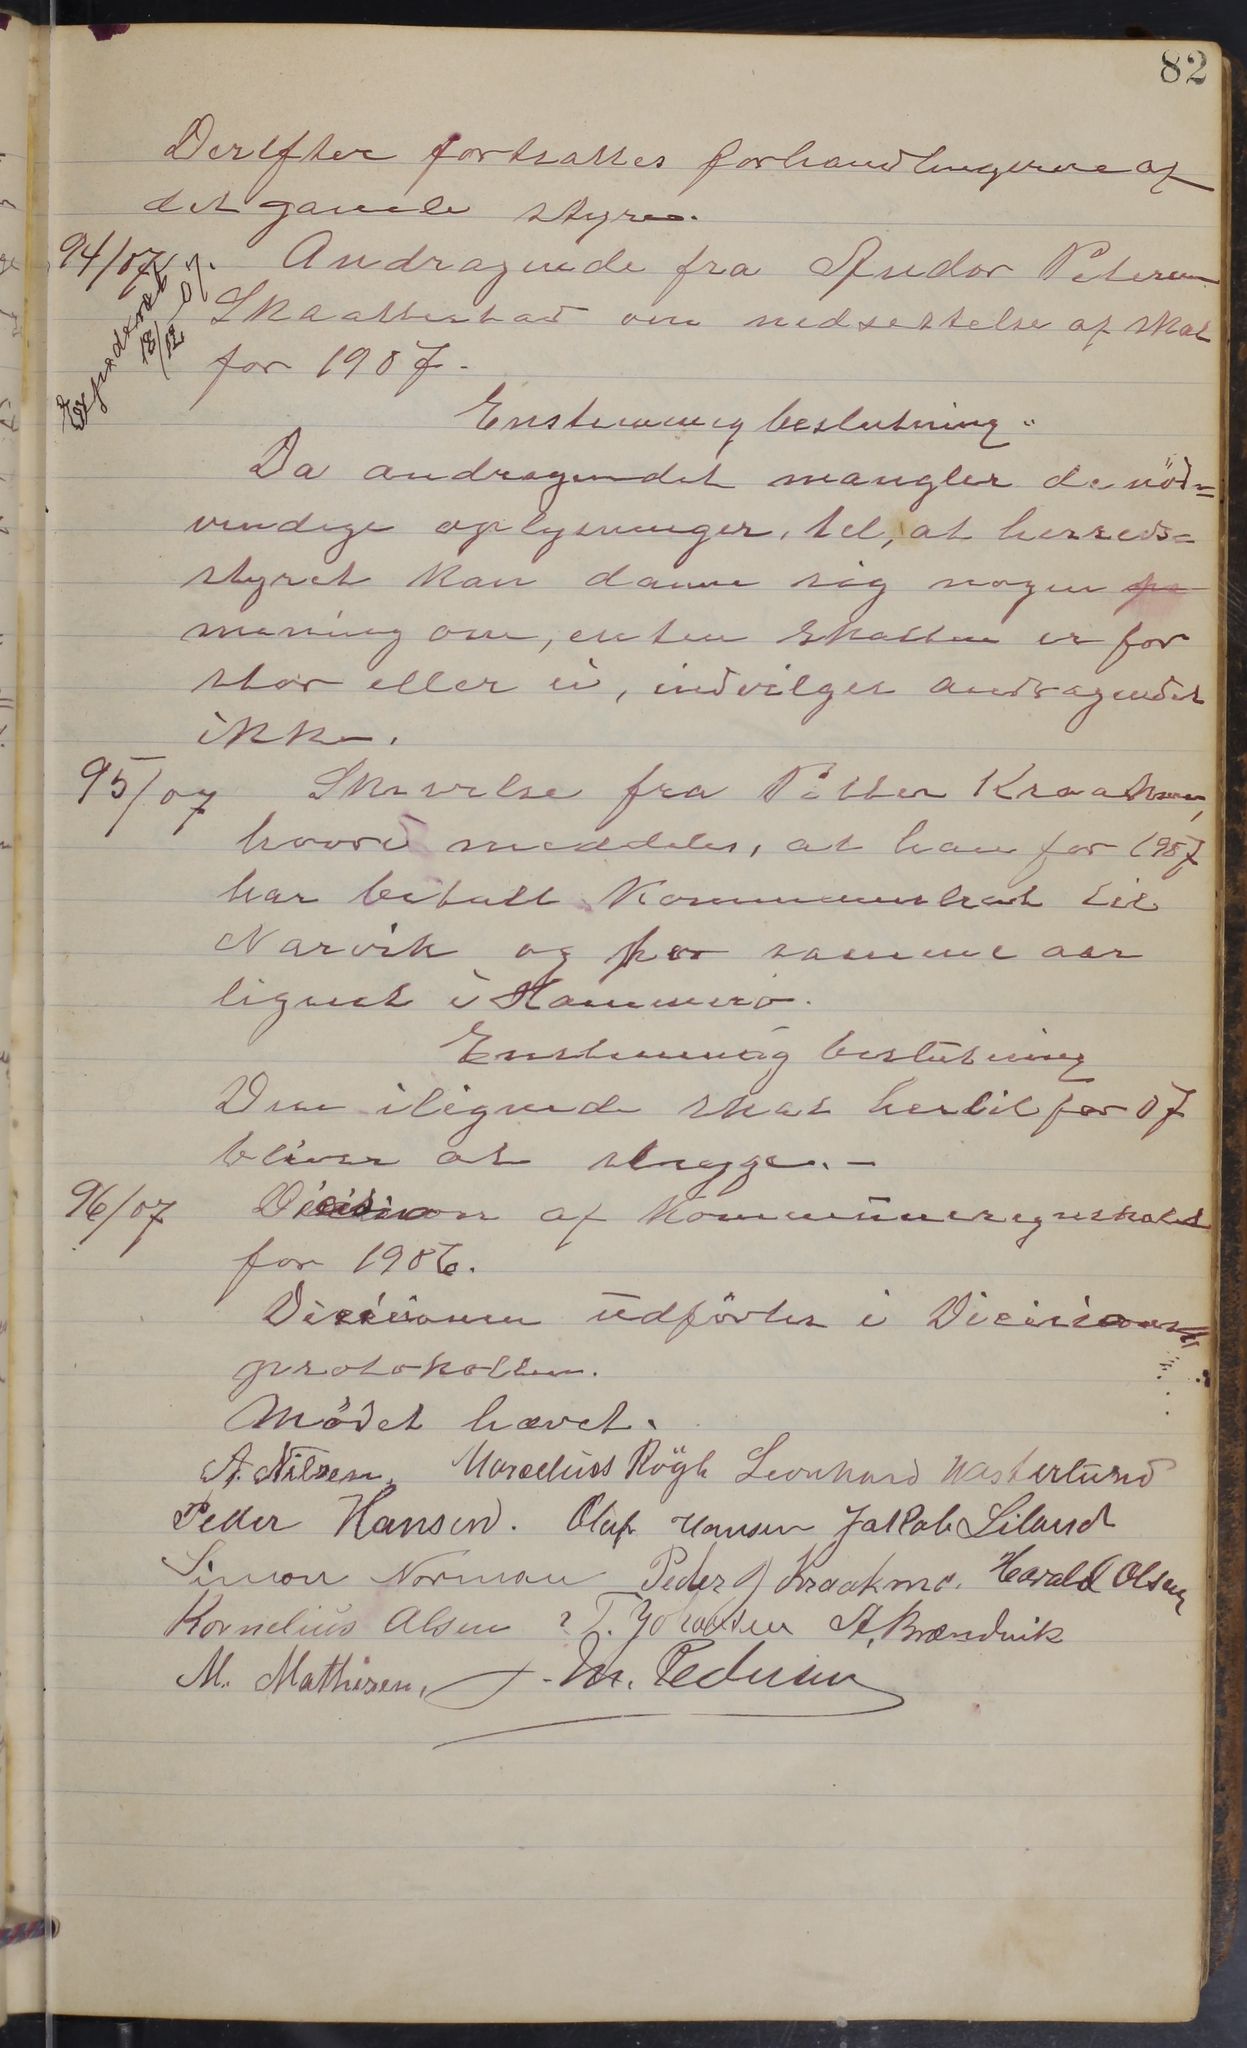 82
Derefter fortsattes forhandlingerne af
det gamle styre.
94/07 Andragende fra Andor Petersen
Expederet 18/12 07.
Skaattestad om nedsettelse af skat
for 1907.
Enstemmig beslutning:
Da andragendet mangler de nöd=
vendige oplysninger, til, at herreds=
styret kan danne sig nogen
mening om, enten skatten er for
stor eller ei, indvilges andragendet
ikke.
95/07 Skrivelse fra Petter Kraakmo,
hvori meddeles, at han for 1907
har betalt Kommuneskat til
Narvik og for samme aar
lignet i Hammerö.
Enstemmig beslutning
Den ilignede skat hertil for 07
bliver at stryge. -
96/07 Dicision af Kommuneregnskabet
for 1906.
Dicisionen udförtes i Dicisions=
protokollen.
Mödet hævet.
A. Nilsen, Marcelius Rögh Leonhard Westerlund
Peder Hansen. Olaf Hansen Jakob Liland
Simon Norman Peder J Kraakmo. Harald Olsen
Kornelius Olsen T. Johansen A. Brændvik
M. Mathisen, J. M. Pedersen